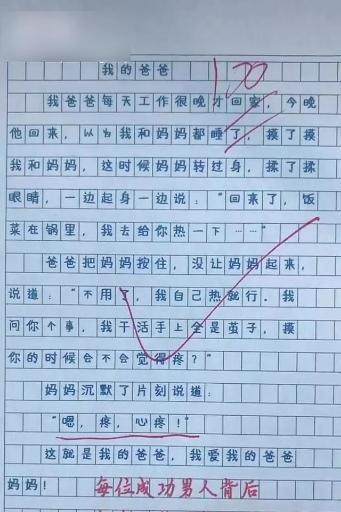 我的爸爸
100
我爸爸每天工作很晚才回家，今晚
他回来，以为我和妈妈都睡了，摸了摸
我和妈妈，这时候妈妈转过身，揉了揉
眼睛，一边起身一边说：“回来了，饭
菜在锅里，我去给你热一下……”
爸爸把妈妈按住，没让妈妈起来，
说道：“不用了，我自己热就行。我
问你个事，我干活手上全是茧子，摸
你的时候会不会觉得疼？”
妈妈沉默了片刻说道：
“嗯，疼，心疼！”
这就是我的爸爸，我爱我的爸爸
妈妈！
每位成功男人背后